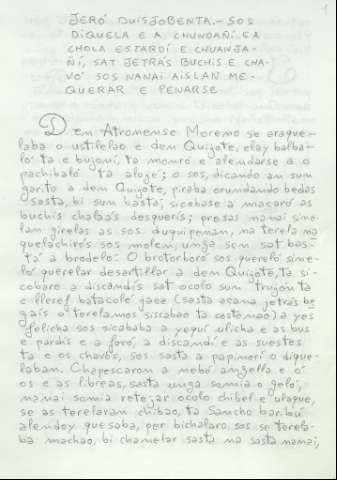 1
JERÓ DUISJOBENTA.- SOS
DIQUELA E A CHUNDAÑÍ E A
CHOLA ESTARDÍ E CHUANJA-
ÑÍ, SAT JETRÁS BUCHIS E CHA-
VÓ SOS NANAI AISLAN ME-
QUERAR E PENARSE
Dem Atronense Moremo se araque-
laba o ustilelao e dem Quijote, elay balba-
ló ta e bujoní, ta monró e alendarse a o
pachibaló ta alojé; o ses, dicando an sum
garito a dem Quijote, piraba orundando bedas
sasta, bi sum basta; sicobase a macaró as
buchis chalaás desquerís; presas nanai sine-
lan girelas as sos duquipenan, na terela na
quelachirós sos molen, unga sem sat bas-
ta' a brodeló. O brotorboró sos quereló sine-
ló querelar desartillar a dem Quijote, ta si-
cobaro a discandís sat ocolo sum trujunta
e lleref batacolé jaez (sasta acana jetrás be-
gais o terelamos siscabao ta costenao) a yes
felicha sos sicababa a yequí ulicha e as bus
e pardis e a foró, a discandí e as suestes
ta e os chavós, sos sasta a papinorí o dique-
laban. Chapescaron a nebó anzella e o
os e as libreas, sasta unga somia o geló,
nanai somia retejar ocolo chibel e ulaque,
se as terelaran chibao, ta Sancho baribú
alendoy quesaba, per bichalaro sos se terela-
ba machao, bi chanelar sasta na sasta nanai,